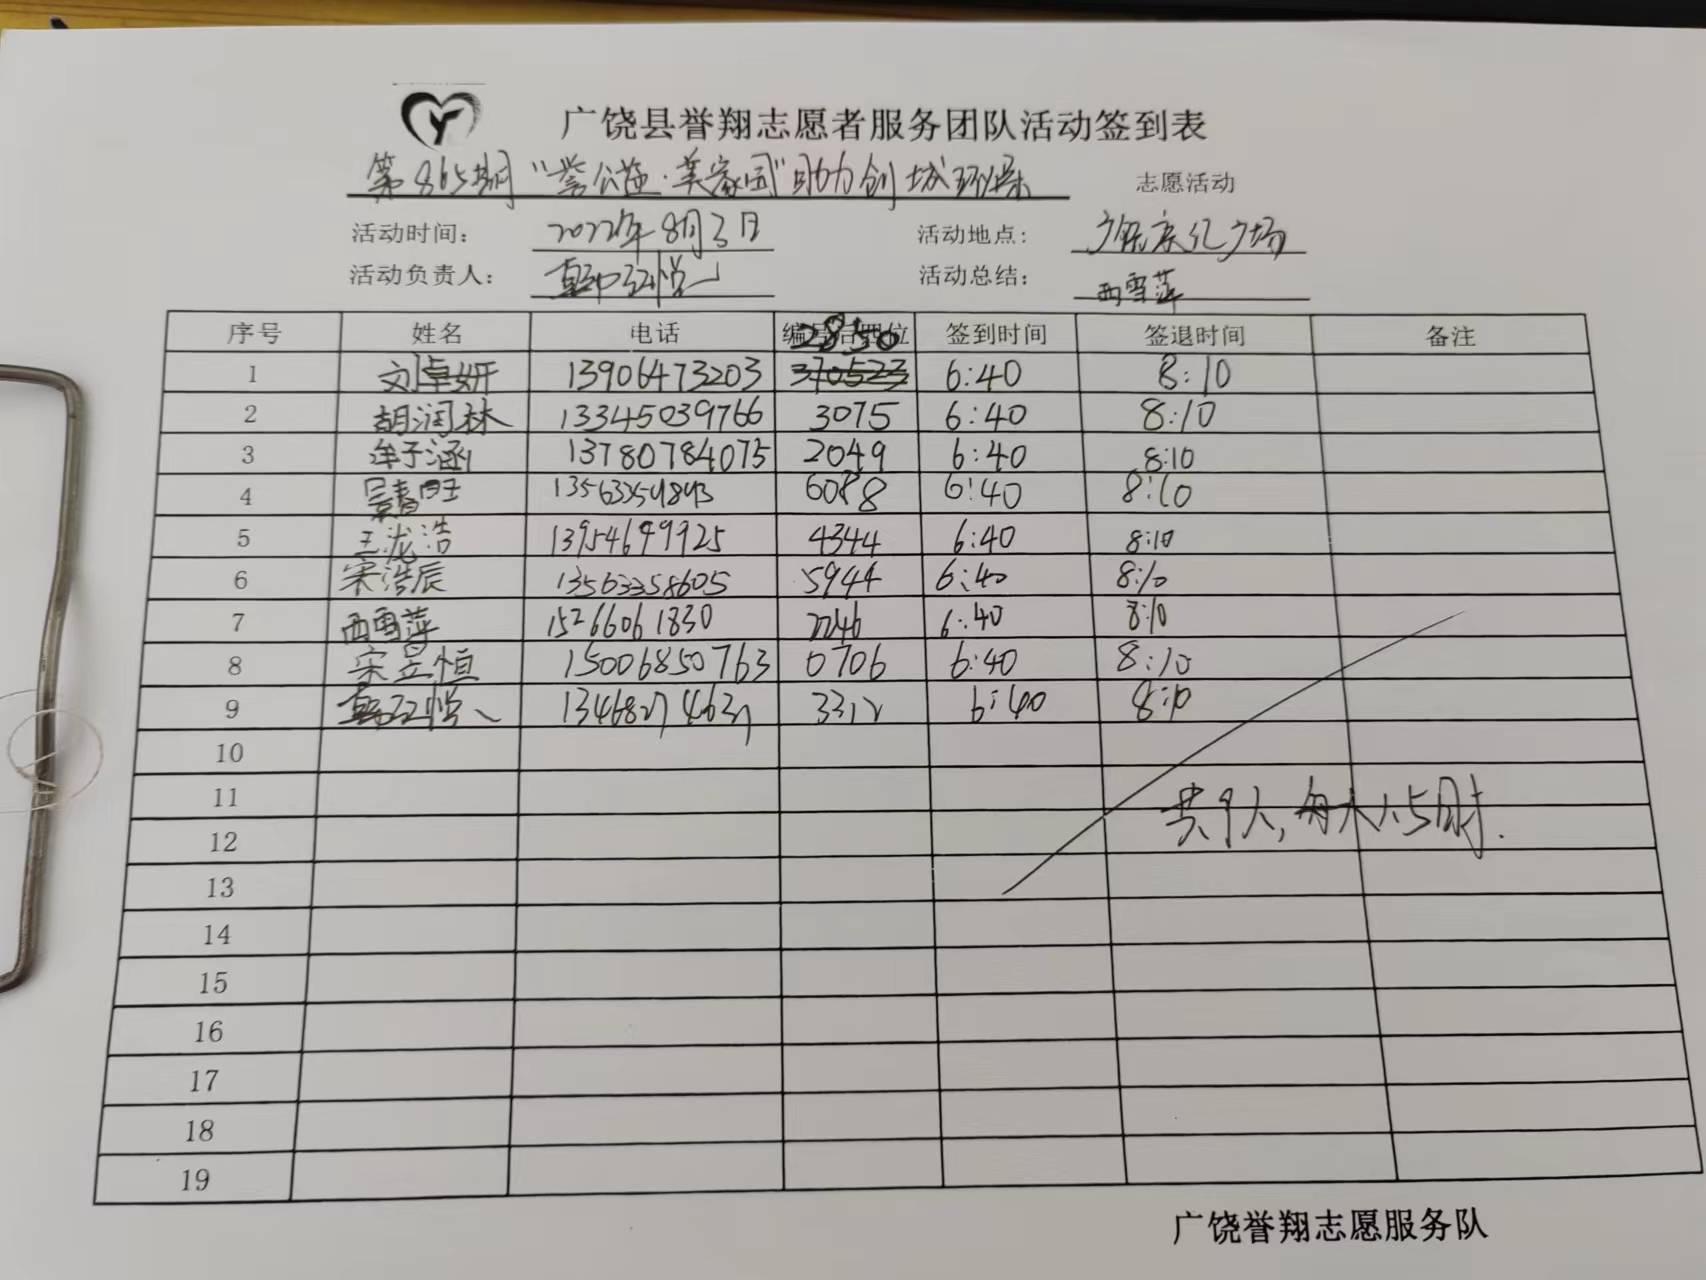 广饶县誉翔志愿者服务团队活动签到表
第865期“誉公益·美家园”助力创城环保 志愿活动
活动时间： 2022年8月3日 活动地点：
活动负责人： 活动总结： 西雪萍
序号 姓名 电话 编号后四位 签到时间 签退时间 备注
1 刘卓妍 13906473203 2850 6:40 8:10
2 胡润林 13345039766 3075 6:40 8:10
3 牟子涵 13780784075 2049 6:40 8:10
4 6088 6:40 8:10
5 王泷浩 13954699925 4344 6:40 8:10
6 宋浩辰 13563358605 5944 6:40 8:10
7 西雪萍 15266061830 2246 6:40 8:10
8 宋昱恒 15006850763 0706 6:40 8:10
9 3312 6:40 8:10
10
11
共9人，每人1.5时.
12
13
14
15
16
17
18
19
广饶誉翔志愿服务队